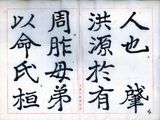 人也 肇
洪源於有
周胙母弟
以命氏桓